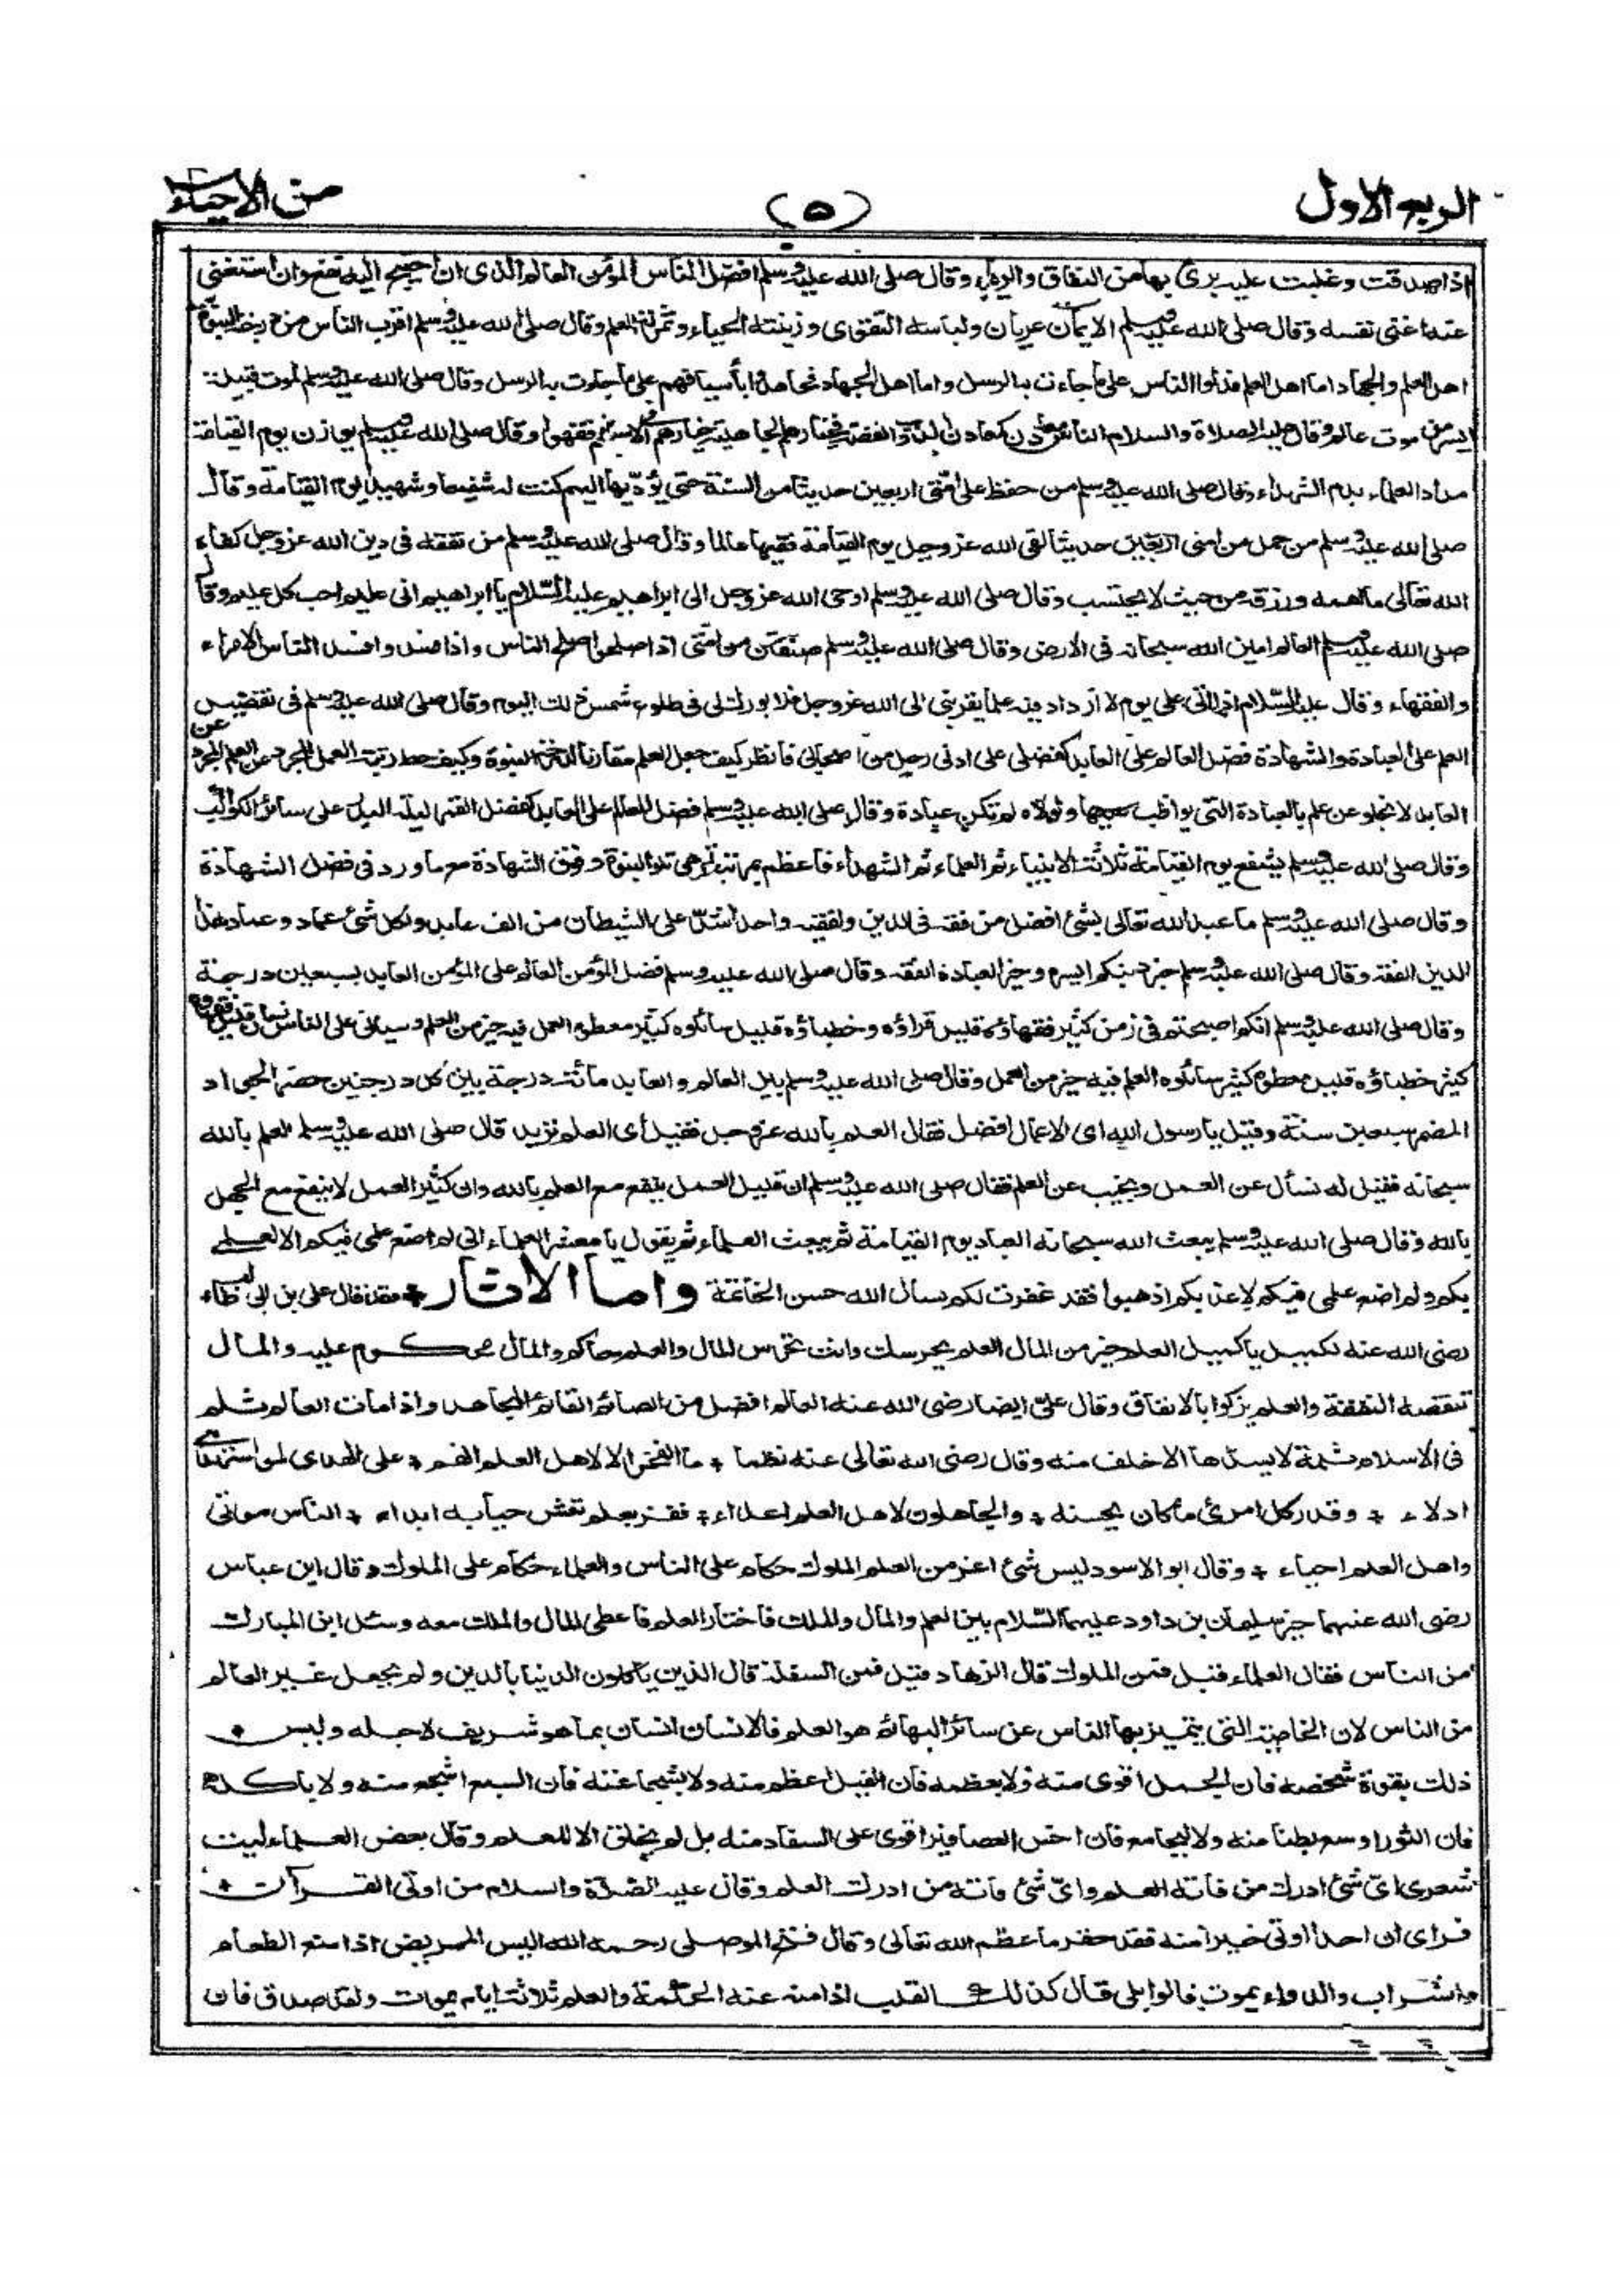 الربع الاول
(٥)
من الاحياء
اذا صدقت وغلبت عليه برئ بها من النفاق والرياء وقال صلى الله عليه وسلم افضل الناس المؤمن العالم الذى ان احتيج اليه نفع وان استغنى
عنه اغنى نفسه وقال صلى الله عليه وسلم الايمان عريان ولباسه التقوى وزينته الحياء وثمرته العلم وقال صلى الله عليه وسلم اقرب الناس من درجة النبوة
اهل العلم والجهاد اما اهل العلم فدلوا الناس على ما جاءت به الرسل واما اهل الجهاد فجاهدوا بأسيافهم على ما جاءت به الرسل وقال صلى الله عليه وسلم لموت قبيلة
ايسر من موت عالم وقال عليه الصلاة والسلام الناس معادن كمعادن الذهب والفضة فخيارهم فى الجاهلية خيارهم فى الاسلام اذا فقهوا وقال صلى الله عليه وسلم يوزن يوم القيامة
مداد العلماء بدم الشهداء وقال صلى الله عليه وسلم من حفظ على امتى اربعين حديثا من السنة حتى يؤديها اليهم كنت له شفيعا وشهيدا يوم القيامة وقال
صلى الله عليه وسلم من حمل من امتى اربعين حديثا لقى الله عز وجل يوم القيامة فقيها عالما وقال صلى الله عليه وسلم من تفقه فى دين الله عز وجل كفاه
الله تعالى ما اهمه ورزقه من حيث لا يحتسب وقال صلى الله عليه وسلم اوحى الله عز وجل الى ابراهيم عليه السلام يا ابراهيم انى عليم احب كل عليم وقال
صلى الله عليه وسلم العالم امين الله سبحانه فى الارض وقال صلى الله عليه وسلم صنفان من امتى اذا صلحوا صلح الناس واذا فسدوا فسد الناس الامراء
والفقهاء وقال عليه السلام اذا اتى على يوم لا ازداد فيه علما يقربنى الى الله عز وجل فلا بورك لى فى طلوع شمس ذلك اليوم وقال صلى الله عليه وسلم فى تفضيل
العلم على العبادة والشهادة فضل العالم على العابد كفضلى على ادنى رجل من اصحابى فانظر كيف جعل العلم مقارنا لدرجة النبوة وكيف حط رتبة العمل المجرد عن العلم وان كان
العابد لا يخلو عن علم بالعبادة التى يواظب عليها ولولاه لم تكن عبادة وقال صلى الله عليه وسلم فضل العالم على العابد كفضل القمر ليلة البدر على سائر الكواكب
وقال صلى الله عليه وسلم يشفع يوم القيامة ثلاثة الانبياء ثم العلماء ثم الشهداء فاعظم بمرتبة هى تلو النبوة وفوق الشهادة مع ما ورد فى فضل الشهادة
وقال صلى الله عليه وسلم ما عبد الله تعالى بشئ افضل من فقه فى الدين ولفقيه واحد اشد على الشيطان من الف عابد ولكل شئ عماد وعماد هذا
الدين الفقه وقال صلى الله عليه وسلم خير دينكم ايسره وخير العبادة الفقه وقال صلى الله عليه وسلم فضل المؤمن العالم على المؤمن العابد بسبعين درجة
وقال صلى الله عليه وسلم انكم اصبحتم فى زمن كثير فقهاؤه قليل قراؤه وخطباؤه قليل سائلوه كثير معطوه العمل فيه خير من العلم وسيأتى على الناس زمان قليل فقهاؤه
كثير خطباؤه قليل معطوه كثير سائلوه العلم فيه خير من العمل وقال صلى الله عليه وسلم بين العالم والعابد مائة درجة بين كل درجتين حضر الجواد
المضمر سبعين سنة وقيل يا رسول الله اى الاعمال افضل فقال العلم بالله عز وجل فقيل أى العلم تريد قال صلى الله عليه وسلم العلم بالله
سبحانه فقيل له نسأل عن العمل وتجيب عن العلم فقال صلى الله عليه وسلم ان قليل العمل ينفع مع العلم بالله وان كثير العمل لا ينفع مع الجهل
بالله وقال صلى الله عليه وسلم يبعث الله سبحانه العباد يوم القيامة ثم يبعث العلماء ثم يقول يا معشر العلماء انى لم اضع علمى فيكم الا لعلمى
بكم ولم اضع علمى فيكم لاعذبكم اذهبوا فقد غفرت لكم نسأل الله حسن الخاتمة واما الاثار فقد قال على بن ابى طالب
رضى الله عنه لكميل يا كميل العلم خير من المال العلم يحرسك وانت تحرس المال والعلم حاكم والمال محكوم عليه والمال
تنقصه النفقة والعلم يزكوا بالانفاق وقال على ايضا رضى الله عنه العالم افضل من الصائم القائم المجاهد واذا مات العالم ثلم
فى الاسلام ثلمة لا يسدها الا خلف منه وقال رضى الله تعالى عنه نظما ٭ ما الفخر الا لاهل العلم انهم ٭ على الهدى لمن استهدى
ادلاء ٭ وقدر كل امرئ ما كان يحسنه ٭ والجاهلون لاهل العلم اعداء ٭ ففز بعلم تعش حيا به ابدا ٭ الناس موتى
واهل العلم احياء ٭ وقال ابو الاسود ليس شئ اعز من العلم الملوك حكام على الناس والعلماء حكام على الملوك وقال ابن عباس
رضى الله عنهما خير سليمان بن داود عليهما السلام بين العلم والمال والملك فاختار العلم فاعطى المال والملك معه وسئل ابن المبارك
من الناس فقال العلماء قيل فمن الملوك قال الزهاد قيل فمن السفلة قال الذين يأكلون الدنيا بالدين ولم يجعل غير العالم
من الناس لان الخاصية التى يتميز بها الناس عن سائر البهائم هو العلم فالانسان انسان بما هو شريف لاجله وليس
ذلك بقوة شخصه فان الجمل اقوى منه ولا بعظمه فان الفيل اعظم منه ولا بشجاعته فان السبع اشجع منه ولا بأكله
فان الثور اوسع بطنا منه ولا ليجامع فان اخس العصافير اقوى على السفاد منه بل لم يخلق الا للعلم وقال بعض العلماء ليت
شعرى اى شئ ادرك من فاته العلم واى شئ فاته من ادرك العلم وقال عليه الصلاة والسلام من اوتى القرآن
فراى ان احدا اوتى خيرا منه فقد حقر ما عظم الله تعالى وقال فتح الموصلى رحمه الله اليس المريض اذا منع الطعام
والشراب والدواء يموت قالوا بلى قال كذلك القلب اذا منع عنه الحكمة والعلم ثلاثة ايام يموت ولقد صدق فان